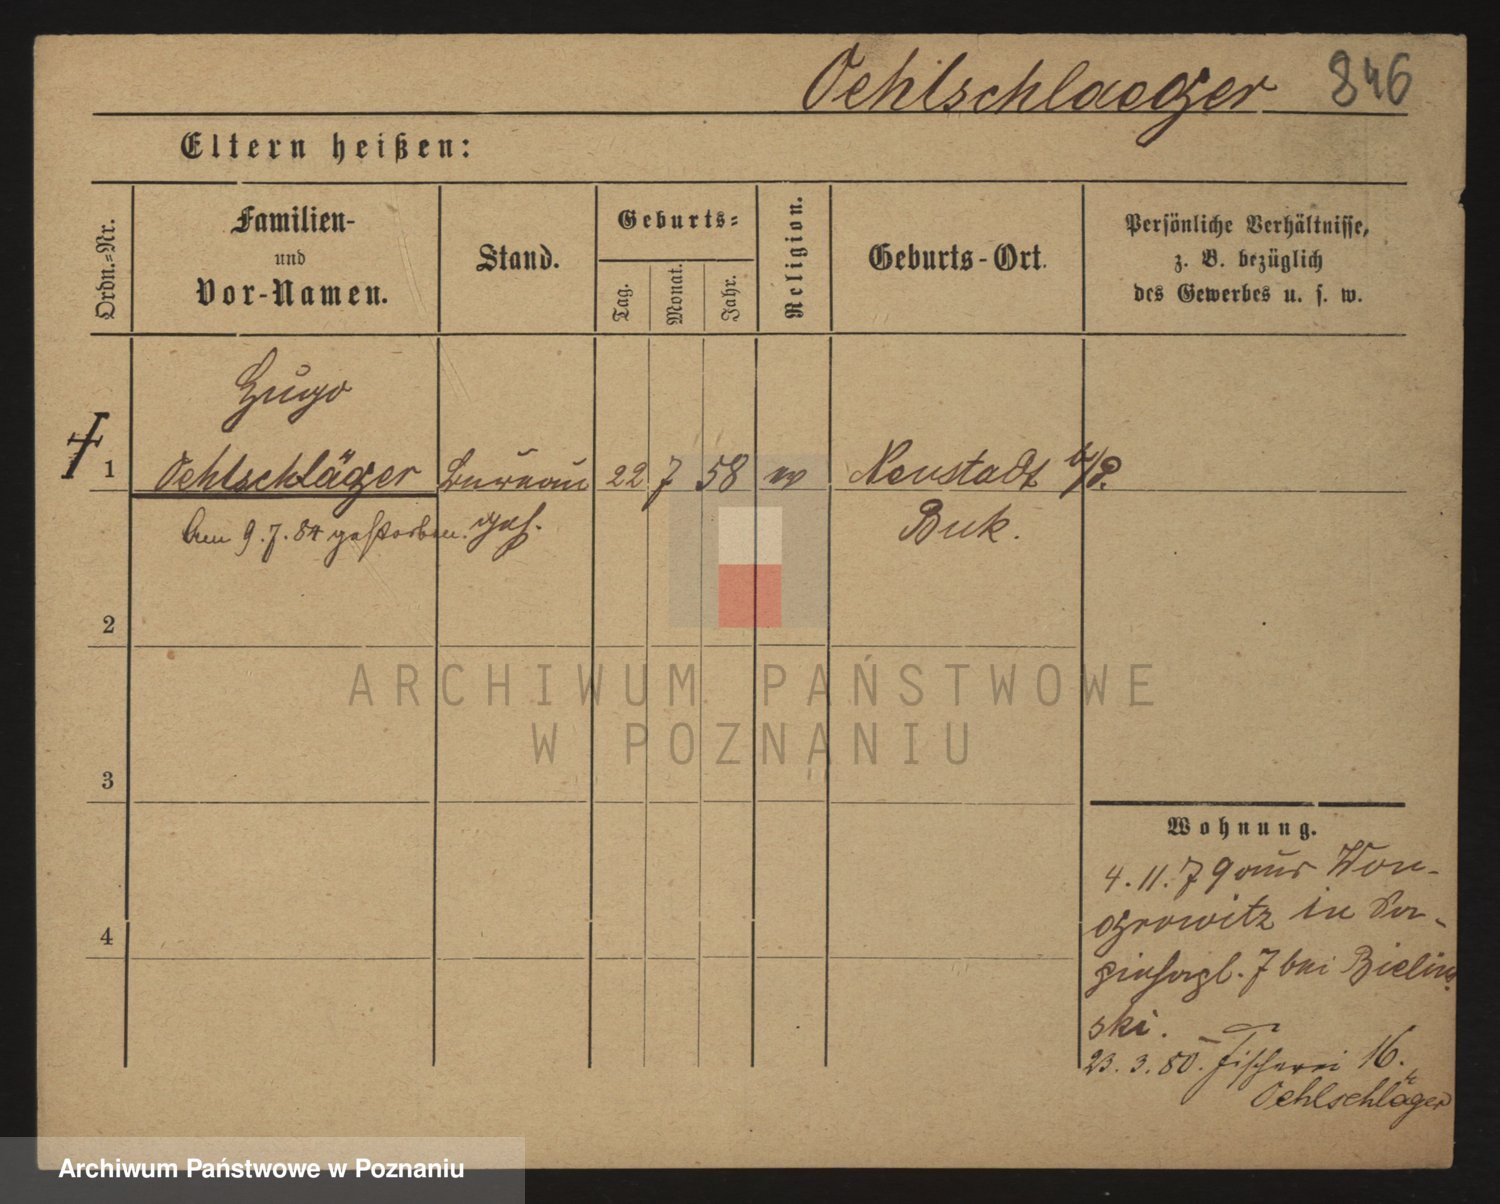 Oehlschlaeger 846
Eltern heißen:
Ordn.=Nr.
Familien-
und
Vor-Namen.
Stand.
Geburts=
Tag.
Monat.
Jahr.
Religion.
Geburts-Ort.
Persönliche Verhältnisse,
z. B. bezüglich
des Gewerbes u. s. w.
Hugo
1 Oehlschläger Bureau 22 7 58 Neustadt b/P.
Am 9.7.84 gestorben. geh. Buk.
2
ARCHIWUM PAŃSTWOWE
W POZNANIU
3
Wohnung.
4. 11. 79 aus Won-
growitz in
7 bei Bielin-
4
ski.
23. 3. 80. Fischerei 16.
Oehlschläger
Archiwum Państwowe w Poznaniu